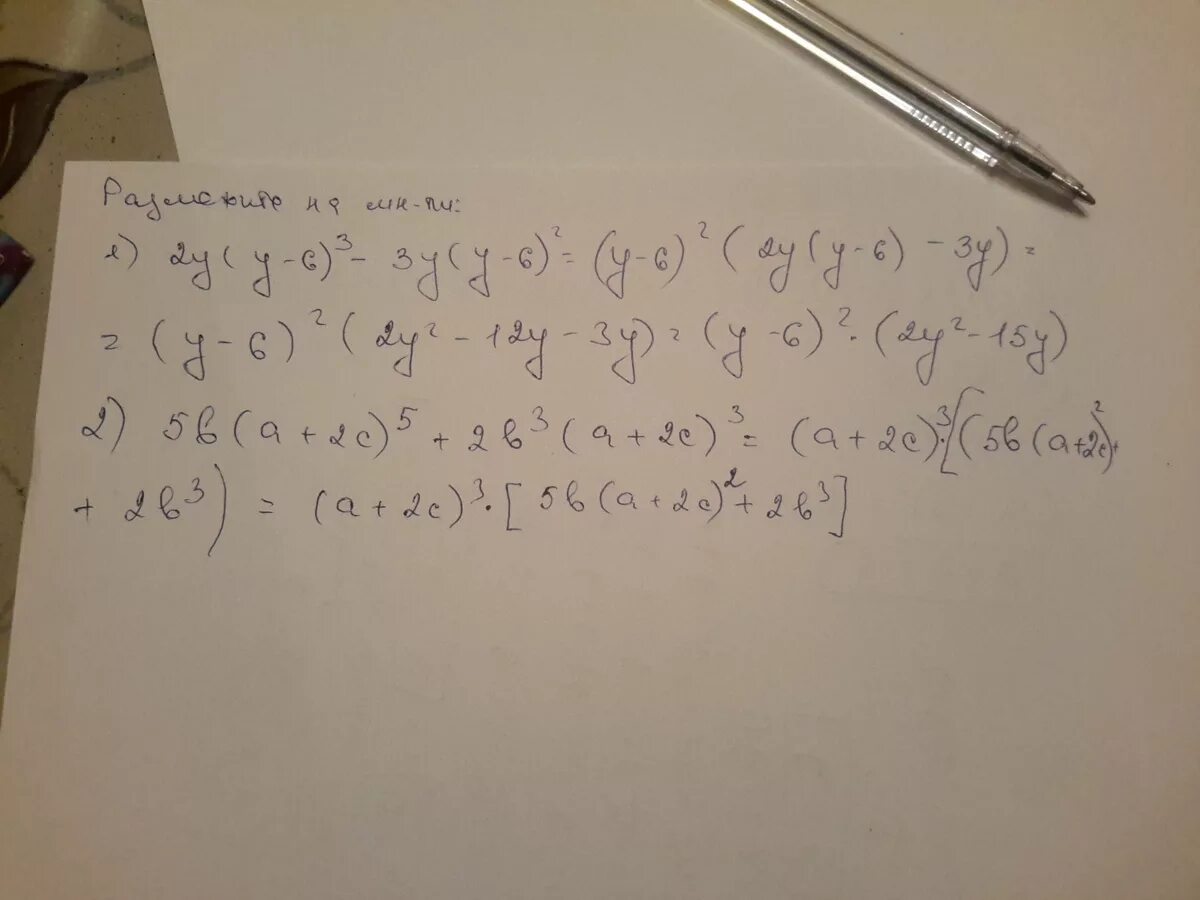 Разложите на мн-ли:
1) 2y(y-6)³ - 3y(y-6)² = (y-6)² (2y(y-6) - 3y) =
= (y-6)² (2y² - 12y - 3y) = (y-6)² · (2y² - 15y)
2) 5b(a+2c)⁵ + 2b³(a+2c)³ = (a+2c)³·[(5b(a+2c)²+
+ 2b³) = (a+2c)³·[5b(a+2c)² + 2b³]